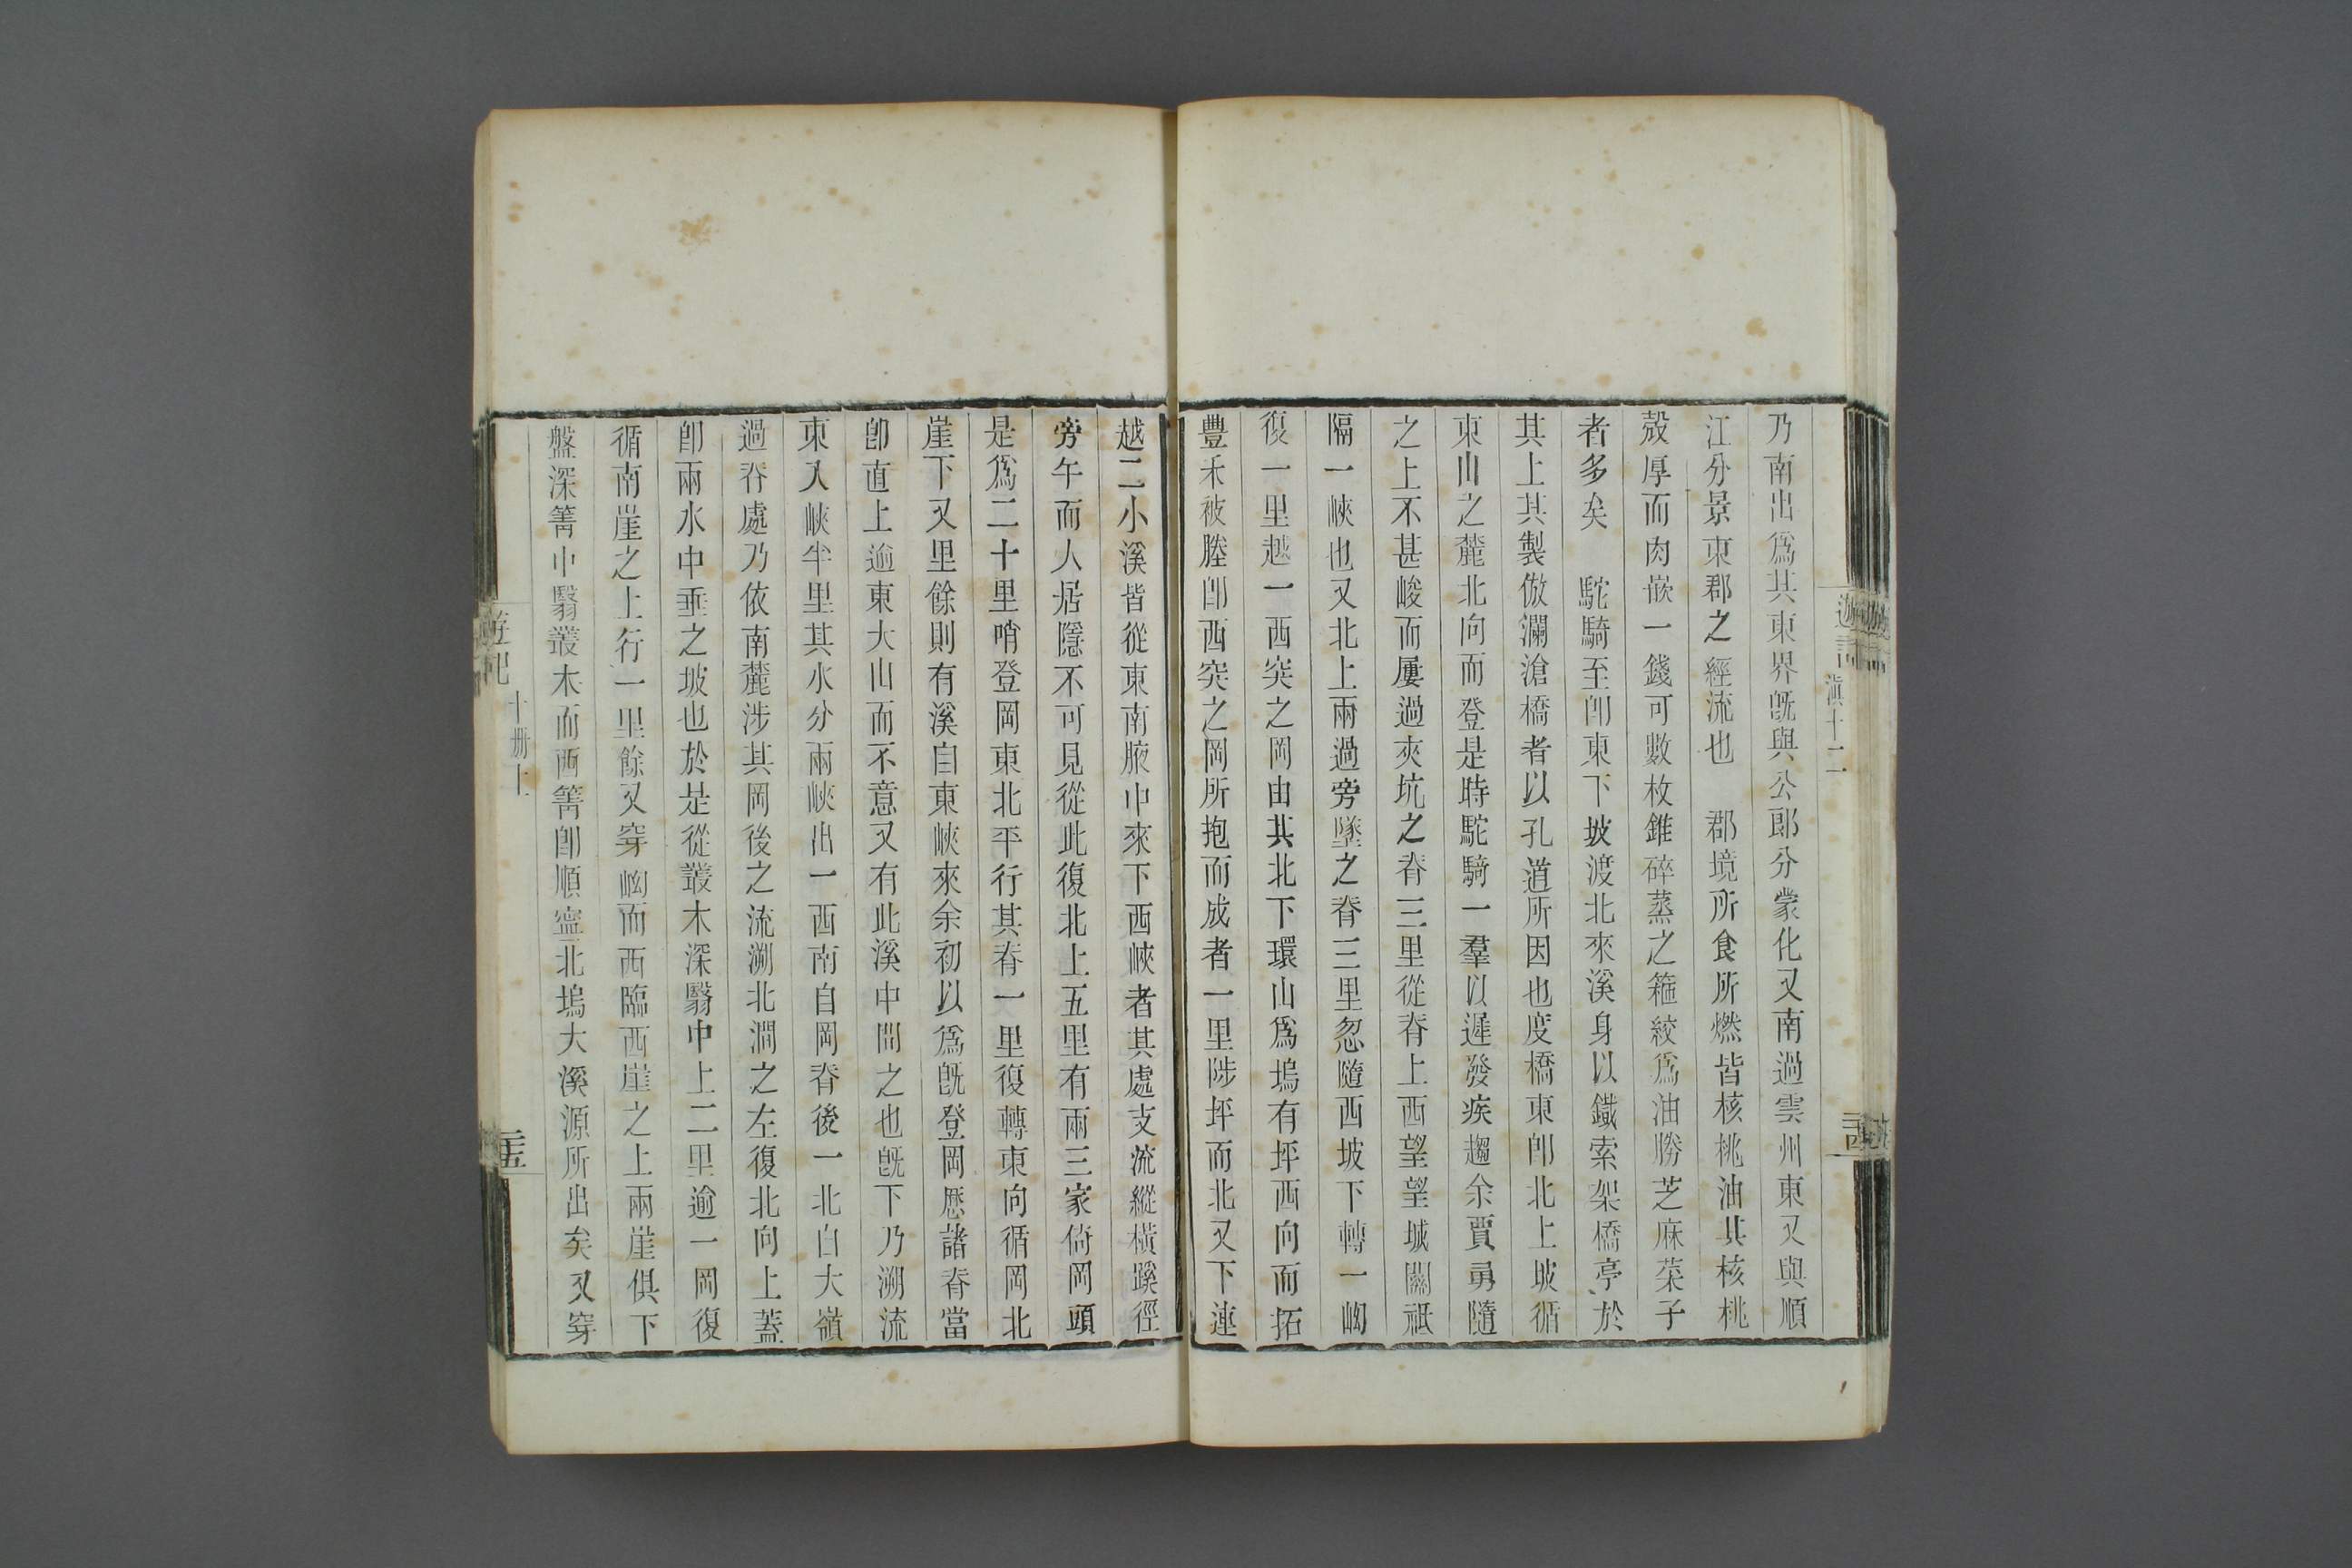 滇十二
乃南出爲其東界旣與公郞分蒙化又南過雲州東又與順
江分景東郡之經流也　郡境所食所燃皆核桃油其核桃
殼厚而肉嵌一錢可數枚錐碎蒸之箍絞爲油勝芝麻菜子
者多矣　駝騎至卽東下坡渡北來溪身以鐵索架橋亭於
其上其製倣瀾滄橋者以孔道所因也度橋東卽北上坡循
東山之麓北向而登是時駝騎一羣以遲發疾趨余賈勇隨
之上不甚峻而屢過夾坑之脊三里從脊上西望望城關祗
隔一峽也又北上兩過旁墜之脊三里忽隨西坡下轉一㘭
復一里越一西突之岡由其北下環山爲塢有坪西向而拓
豐禾被塍卽西突之岡所抱而成者一里陟坪而北又下連
越二小溪皆從東南腋中來下西峽者其處支流縱橫蹊徑
旁午而人居隱不可見從此復北上五里有兩三家倚岡頭
是爲二十里哨登岡東北平行其脊一里復轉東向循岡北
崖下又里餘則有溪自東峽來余初以爲旣登岡歷諸脊當
卽直上逾東大山而不意又有此溪中間之也旣下乃溯流
東入峽半里其水分兩峽出一西南自岡脊後一北自大嶺
過脊處乃依南麓涉其岡後之流溯北澗之左復北向上蓋
卽兩水中垂之坡也於是從叢木深翳中上二里逾一岡復
循南崖之上行一里餘又穿㘭而西臨西崖之上兩崖俱下
盤深箐中翳叢木而西箐卽順寧北塢大溪源所出矣又穿
遊記
十册上
二十五